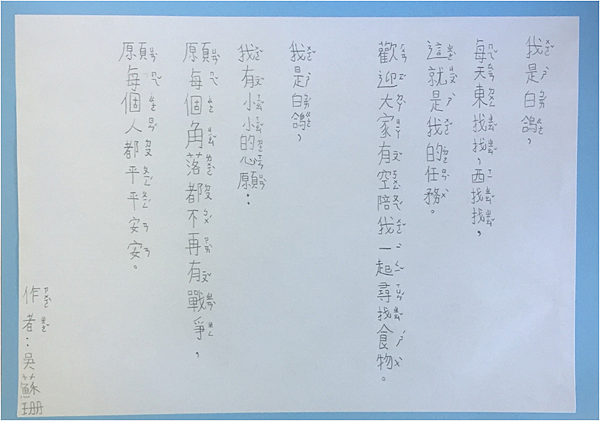 我是白鴿，
每天東找找，西找找，
這就是我的任務。
歡迎大家有空陪我一起尋找食物。
我是白鴿，
我有小小的心願：
願每個角落都不再有戰爭，
願每個人都平平安安。
作者：吳蘇珊